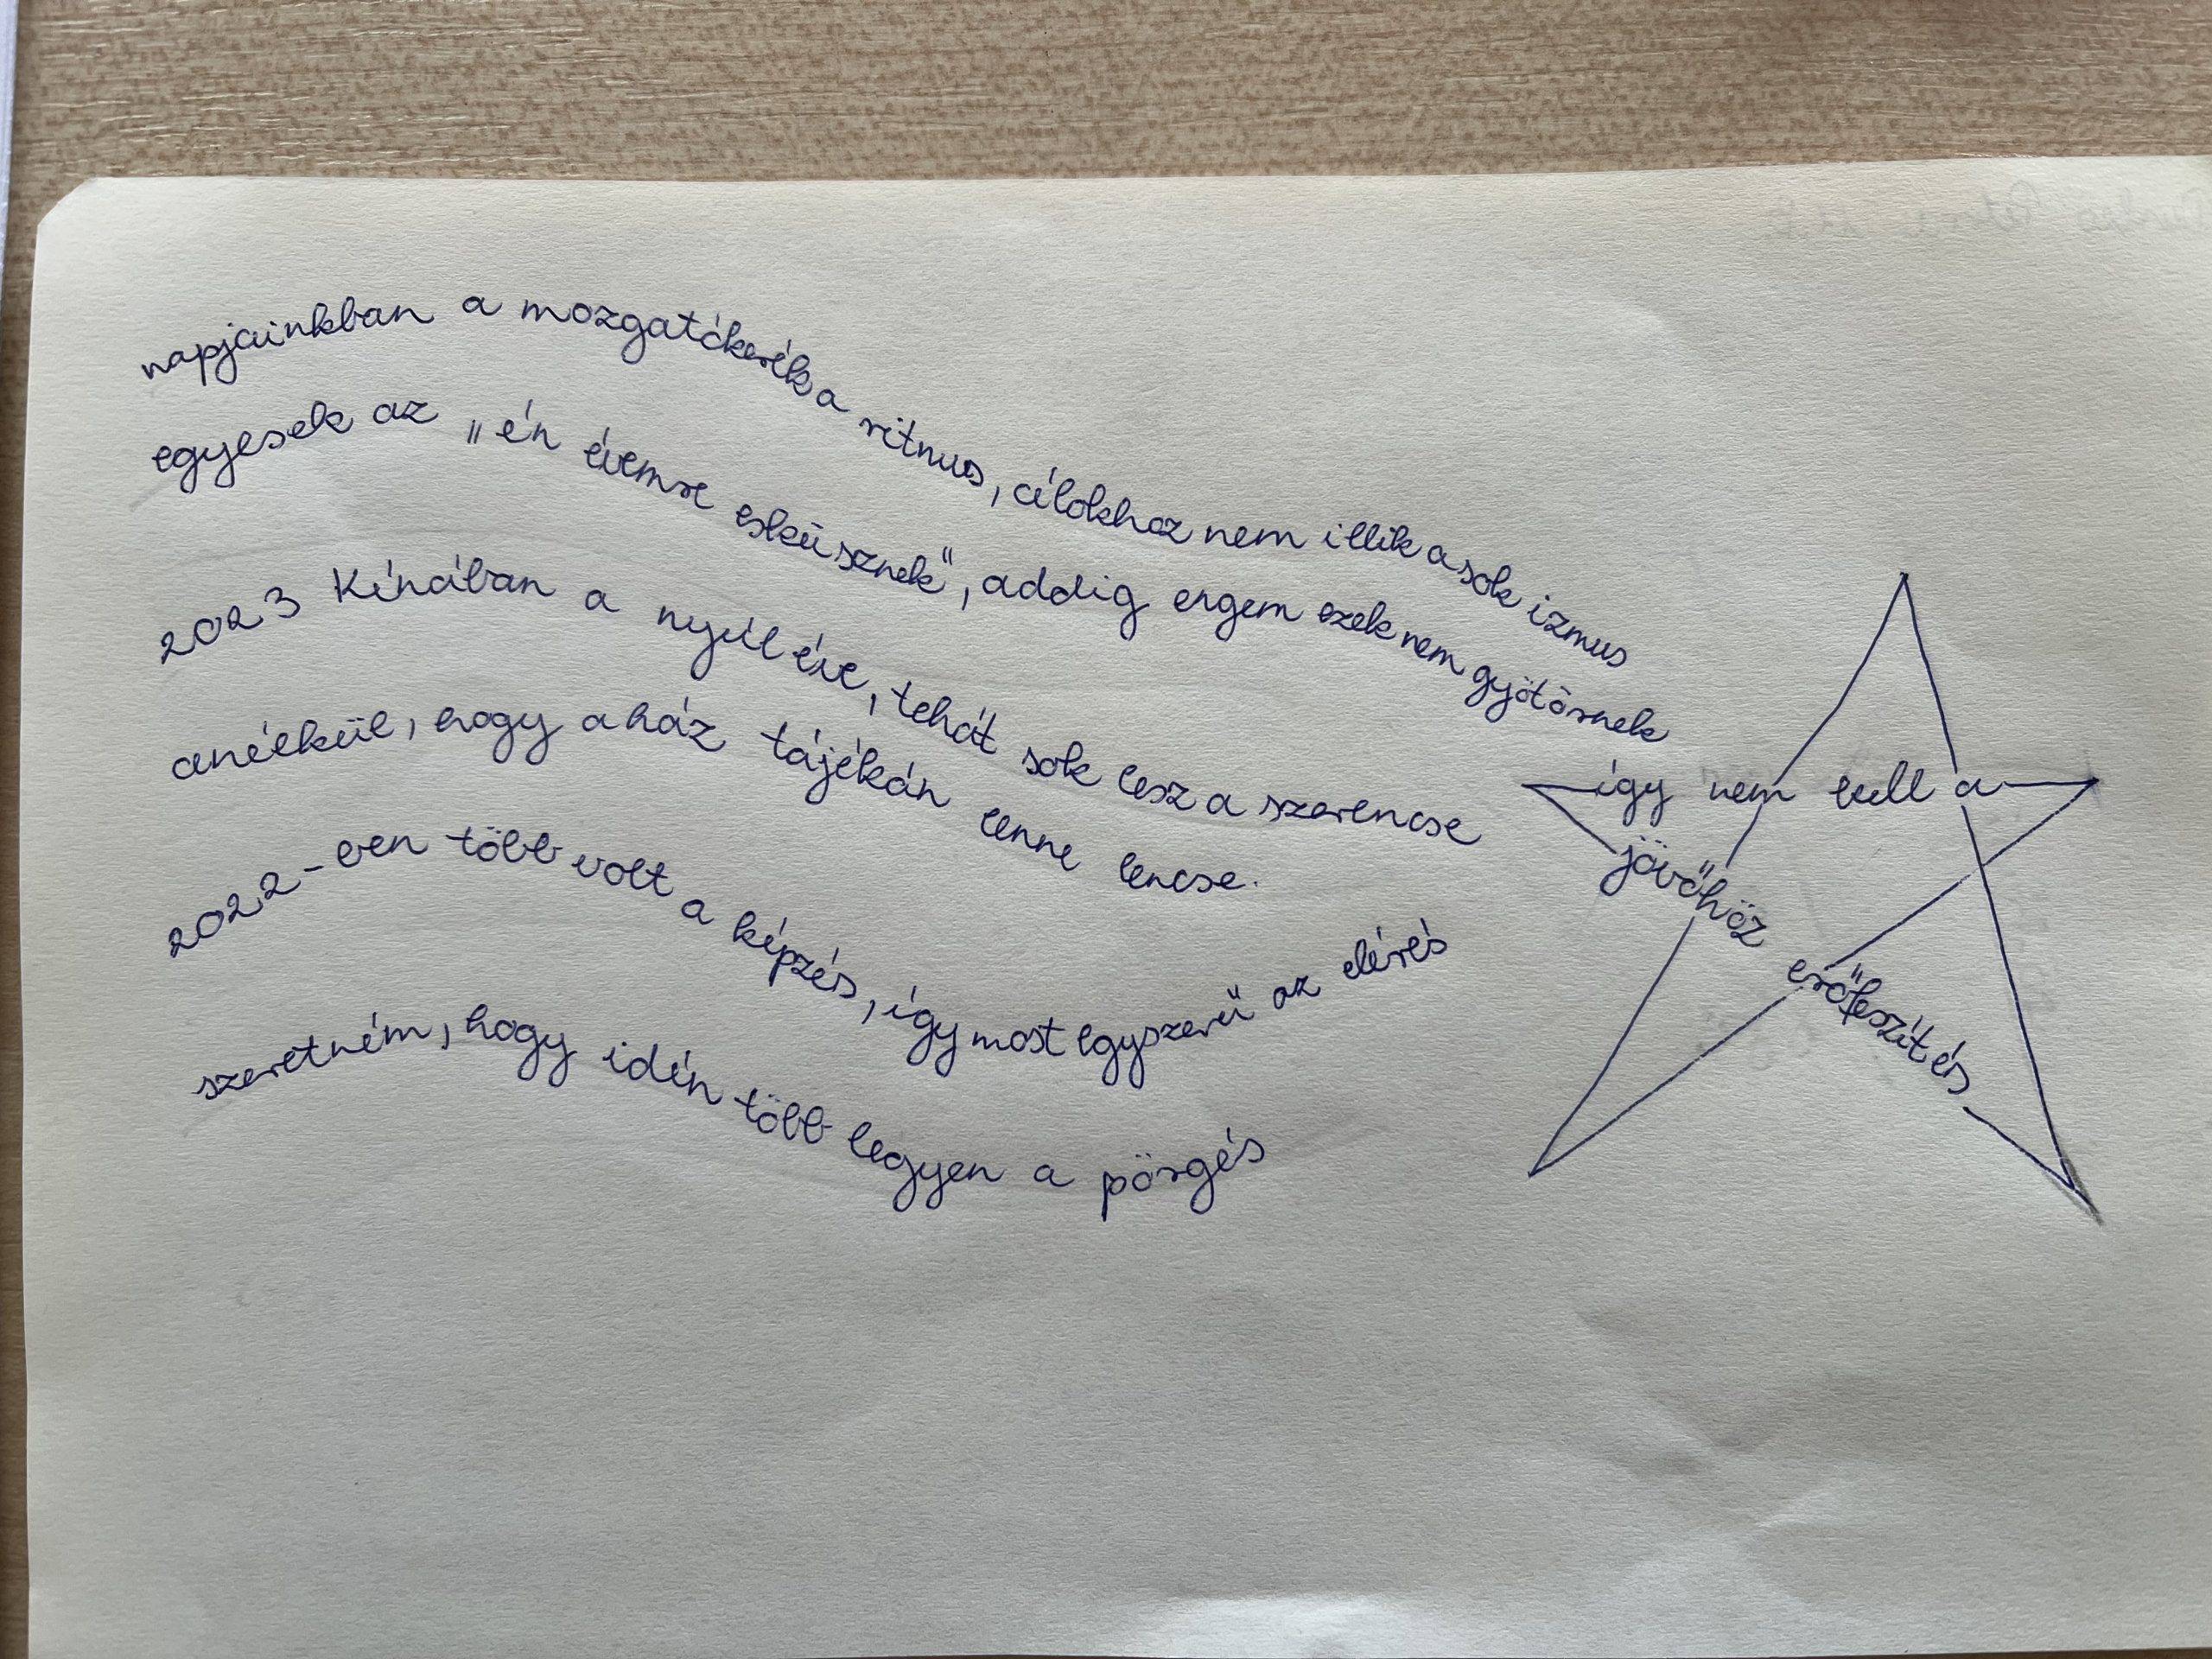 napjainkban a mozgatókerék a ritmus, célokhoz nem illik a sok izmus
egyesek az „én évemre esküsznek", addig engem ezek nem gyötörnek
2023 Kínában a nyúl éve, tehát sok lesz a szerencse
anélkül, hogy a ház tájékán lenne lencse.
2022-ben több volt a képzés, így most egyszerű az elérés
szeretném, hogy idén több legyen a pörgés
így nem kell a
jövőhöz erőfeszítés